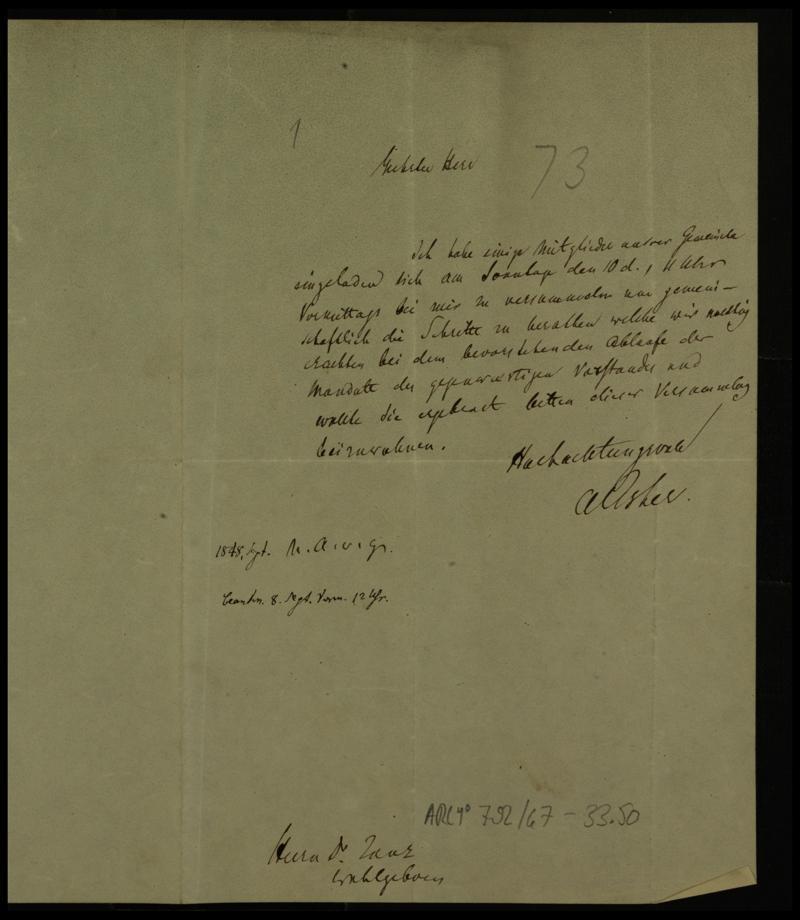 1
73
Geehrter Herr
Ich habe einige Mitglieder unsrer Gemeinde
eingeladen sich am Sonntag den 10 d., 11 Uhr
Vormittags bei mir zu versammeln um gemein-
schaftlich die Schritte zu berathen welche wir noethig
erachten bei dem bevorstehenden Ablaufe der
Mandate des gegenwaertigen Vorstandes und
wollte Sie ergebenst bitten dieser Versammlung
beizuwohnen.
Hochachtungsvoll
A Asher.
1848, Sept.
beantw. 8. Sept. Vorm. 12 Uhr.
ARC 4° 792/67 - 33.50
Herrn Dr. Zunz
Wohlgeboren